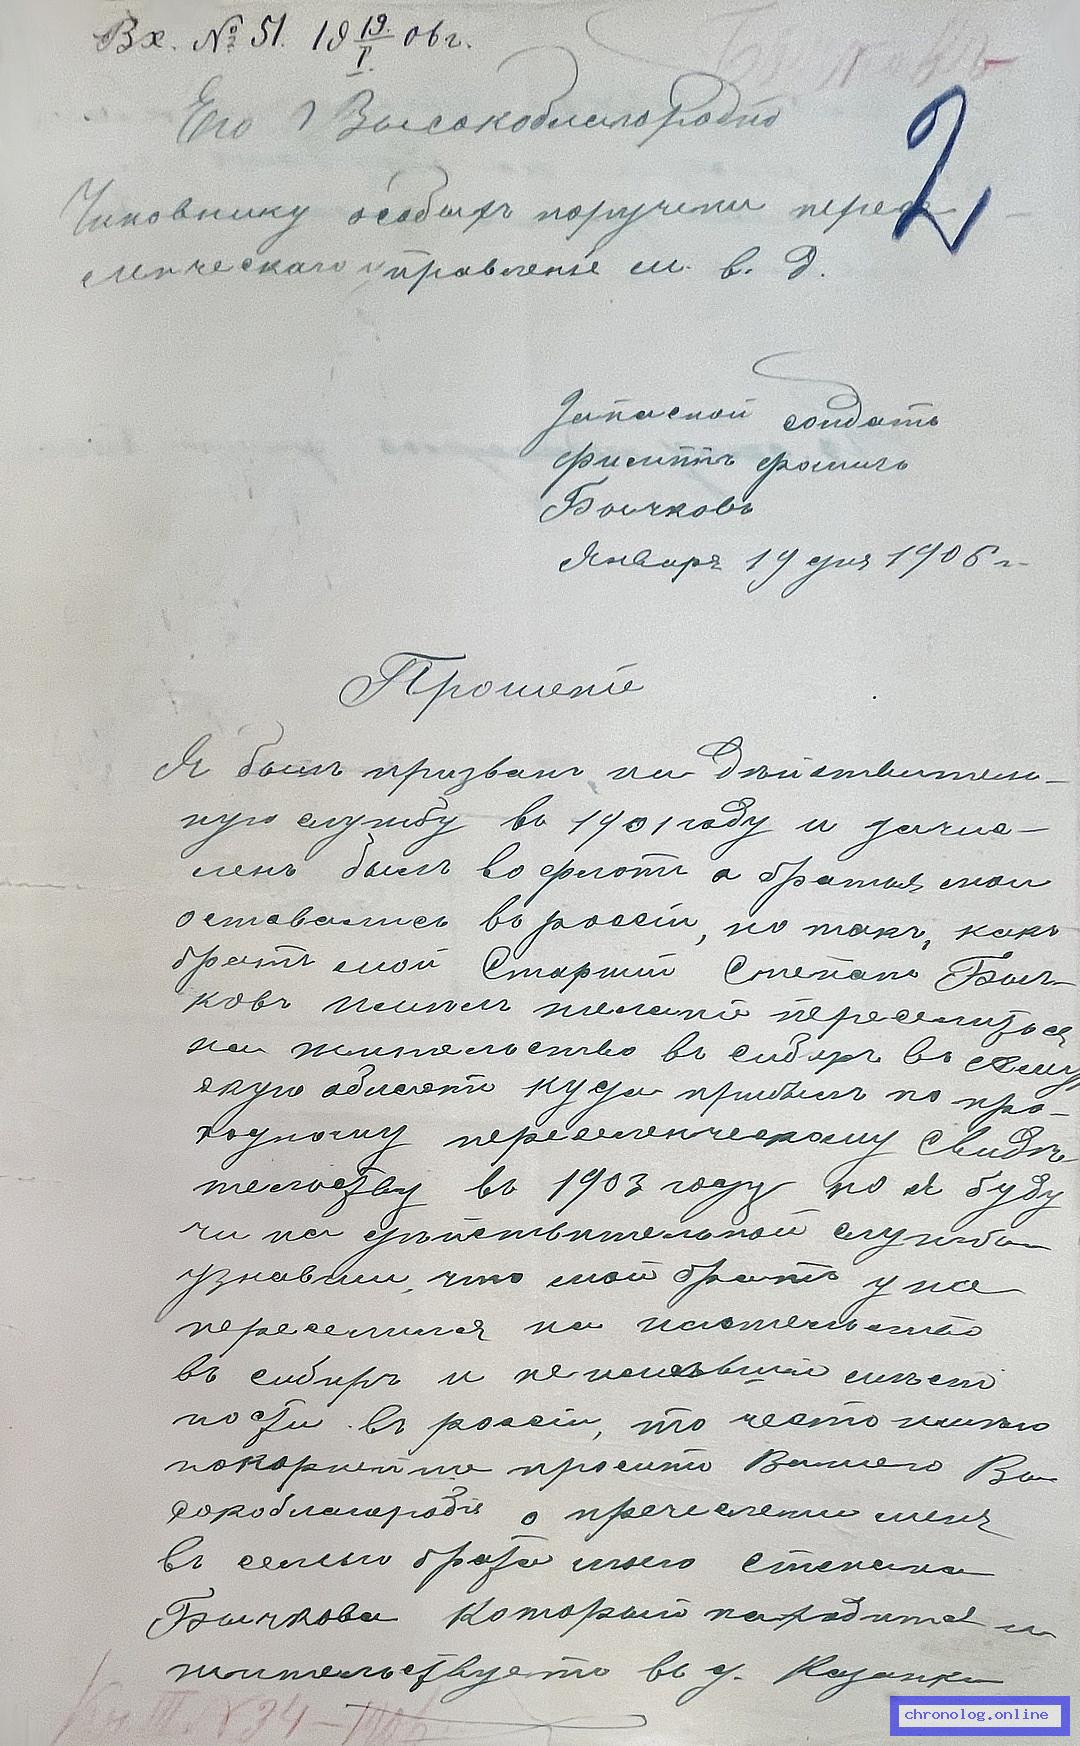 Вх. № 51. 19 19/I 06 г.
2
Его Высокоблагородію
Чиновнику особыхъ порученій пересе
ленческаго управленія м. в. д.
Запасной солдатъ
Филиппъ Фомичъ
Бычковъ
Января 19 дня 1906 г.
Прошеніе
Я былъ призванъ на Действитель-
ную службу въ 1901 году и зачис-
ленъ былъ во флотъ а братья мои
оставались въ россіи, но такъ, какъ
братъ мой Старшій Степанъ Быч-
ковъ желаніе переселиться
на жительство въ сибирь въ
скую область куда прибылъ по про-
ходному переселенческому Свиде-
тельству въ 1903 году но я буду
чи на действительной службе
узнавши, что мой братъ уже
переселился на жительство
въ сибирь и мест
ности въ россіи, то честь имею
покорнейше просить Вашего Вы
сокоблагородія о пречислении меня
въ семью брата моего степана
Бычкова который находится и
жительствуетъ въ д. Казанка
Кн. III. № 34 - 1906
chronolog.online